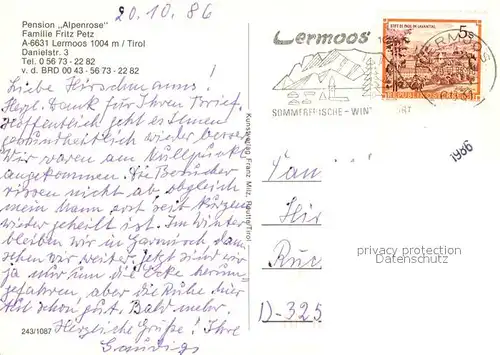 20.10.86
Pension „Alpenrose"
Familie Fritz Petz
A-6631 Lermoos 1004 m / Tirol
Danielstr. 3
Tel. 0 56 73 - 22 82
v. d. BRD 00 43 - 56 73 - 22 82
Liebe Hirschmanns!
Herzl. Dank für Ihren Brief,
hoffentlich geht es Ihnen
gesundheitlich wieder besser.
Wir waren am Nullpunkt
angekommen. Die Besucher
rissen nicht ab obgleich
mein Mann erst seit kurzem
wieder geheilt ist. Im Winter
bleiben wir in Garmisch dann
sehen wir weiter. Jetzt sind wir
ja nur um die Ecke herum
gefahren, aber die Ruhe hier
tut schon gut. Bald mehr.
Herzliche Grüße! Ihre
243/1087
Kunstverlag Franz Milz, Reutte/Tirol
Lermoos
SOMMERFRISCHE - WIN
LERMOOS
STIFT ST. PAUL IM LAVANTTAL
5s
REPUBLIK ÖSTERREICH
1986
Fam
Hir
privacy protection
Datenschutz
D-325